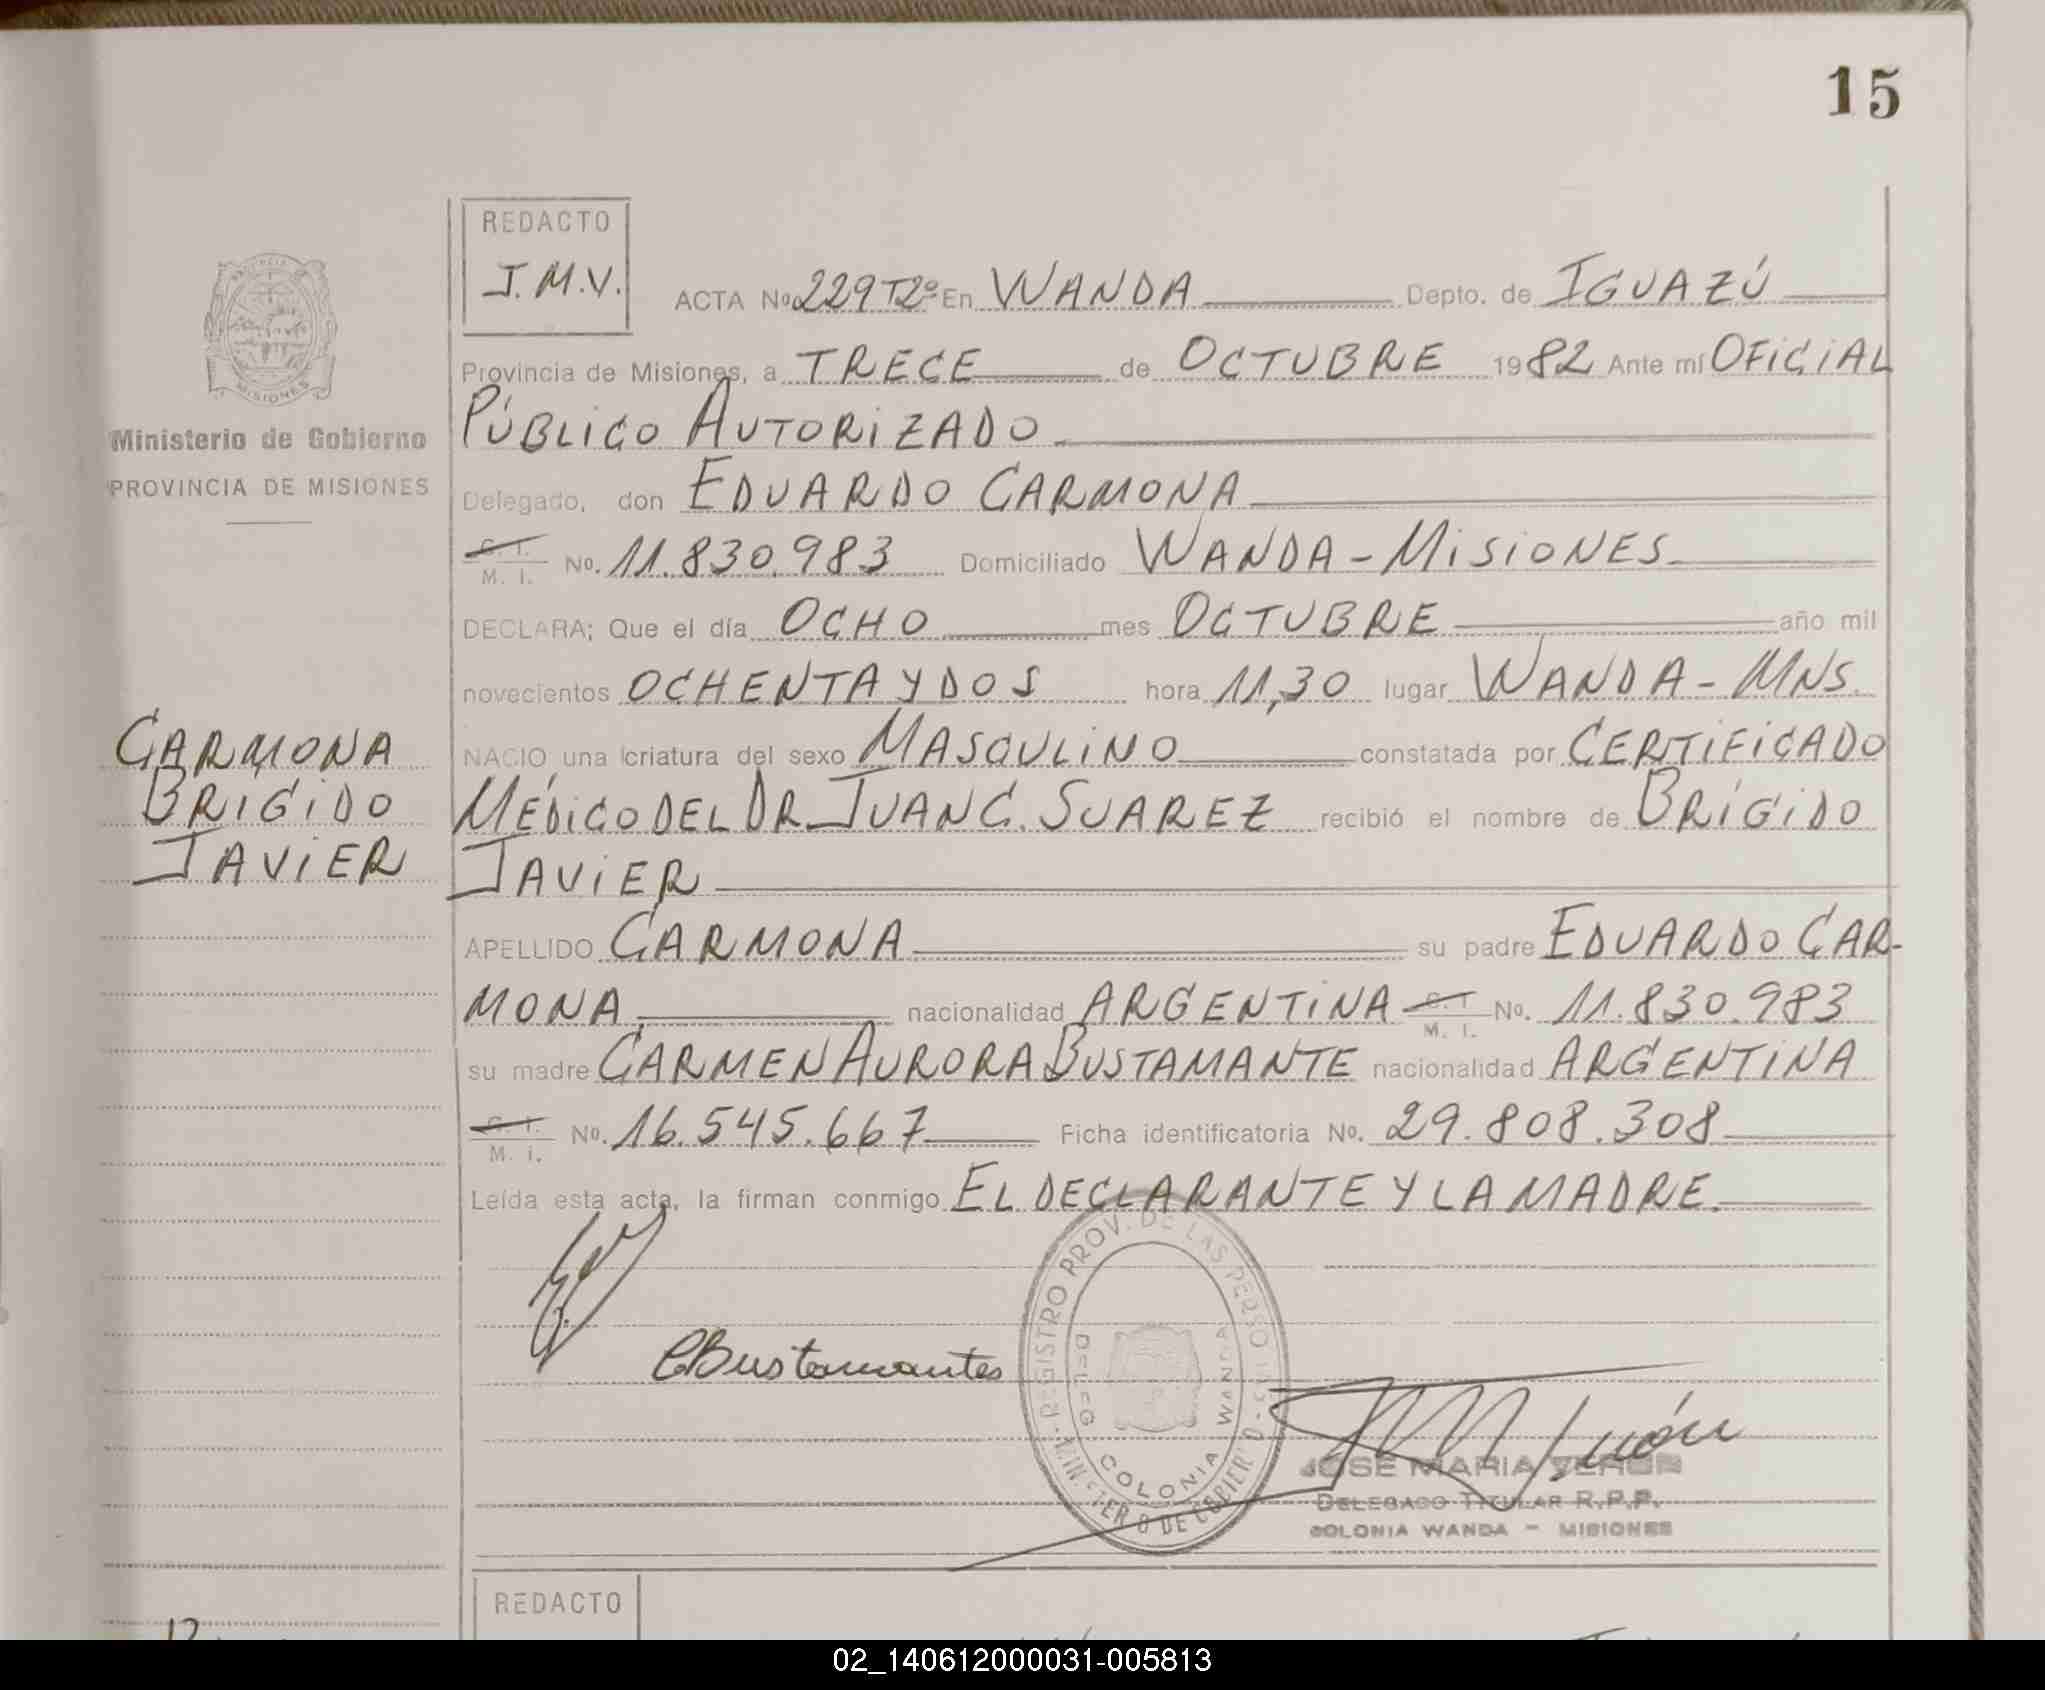 15
REDACTO
J.M.V.
ACTA Nº 229 Tº2º En WANDA Depto. de IGUAZÚ
Provincia de Misiones, a TRECE de OCTUBRE 1982 Ante mí OFICIAL
PÚBLICO AUTORIZADO
Delegado, don EDUARDO CARMONA
C. I.
M. I. No. 11.830.983 Domiciliado WANDA - MISIONES
DECLARA; Que el día OCHO mes OCTUBRE año mil
novecientos OCHENTA Y DOS hora 11,30 lugar WANDA - MNS.
NACIO una criatura del sexo MASCULINO constatada por CERTIFICADO
MÉDICO DEL DR. JUAN C. SUAREZ recibió el nombre de BRÍGIDO
JAVIER
APELLIDO CARMONA su padre EDUARDO CAR-
MONA nacionalidad ARGENTINA C. I.
M. I. No. 11.830.983
su madre CARMEN AURORA BUSTAMANTE nacionalidad ARGENTINA
C. I.
M. i. No. 16.545.667 Ficha identificatoria No. 29.808.308
Leída esta acta, la firman conmigo EL DECLARANTE Y LA MADRE.
CBustamantes
REGISTRO PROV. DE LAS PERSONAS
MINISTERIO DE GOBIERNO
DELEG. COLONIA WANDA
JOSE MARIA VERON
DELEGADO TITULAR R.P.P.
COLONIA WANDA - MISIONES
PROVINCIA
MISIONES
Ministerio de Gobierno
PROVINCIA DE MISIONES
CARMONA
BRÍGIDO
JAVIER
REDACTO
02_140612000031-005813